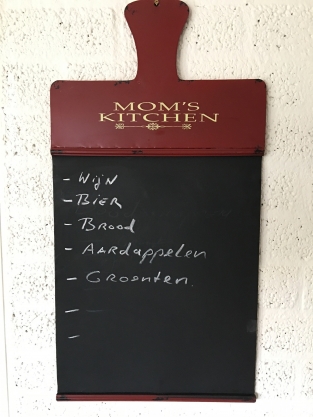 MOM'S
KITCHEN
- Wijn
- Bier
- Brood
- Aardappelen
- Groenten.
-
-